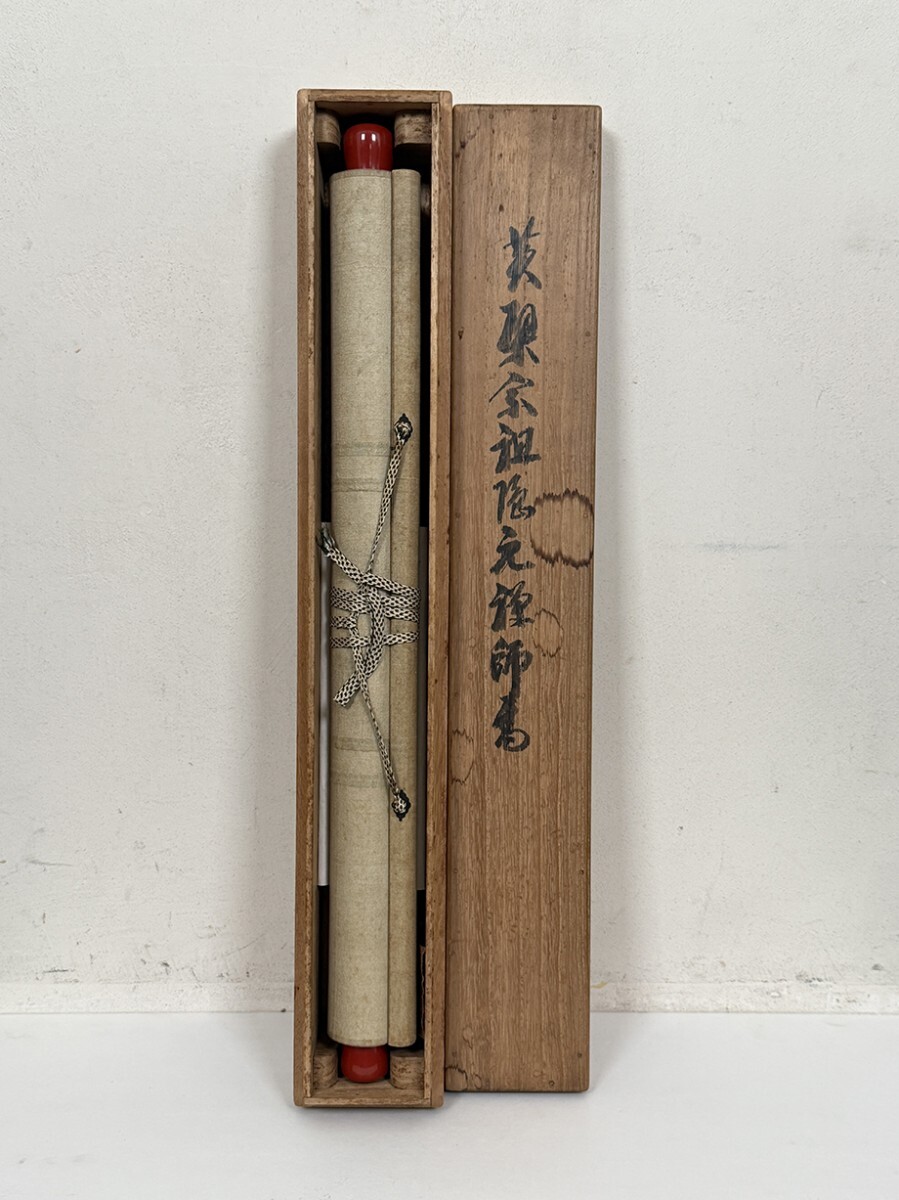 黄檗宗祖隠元禅師書